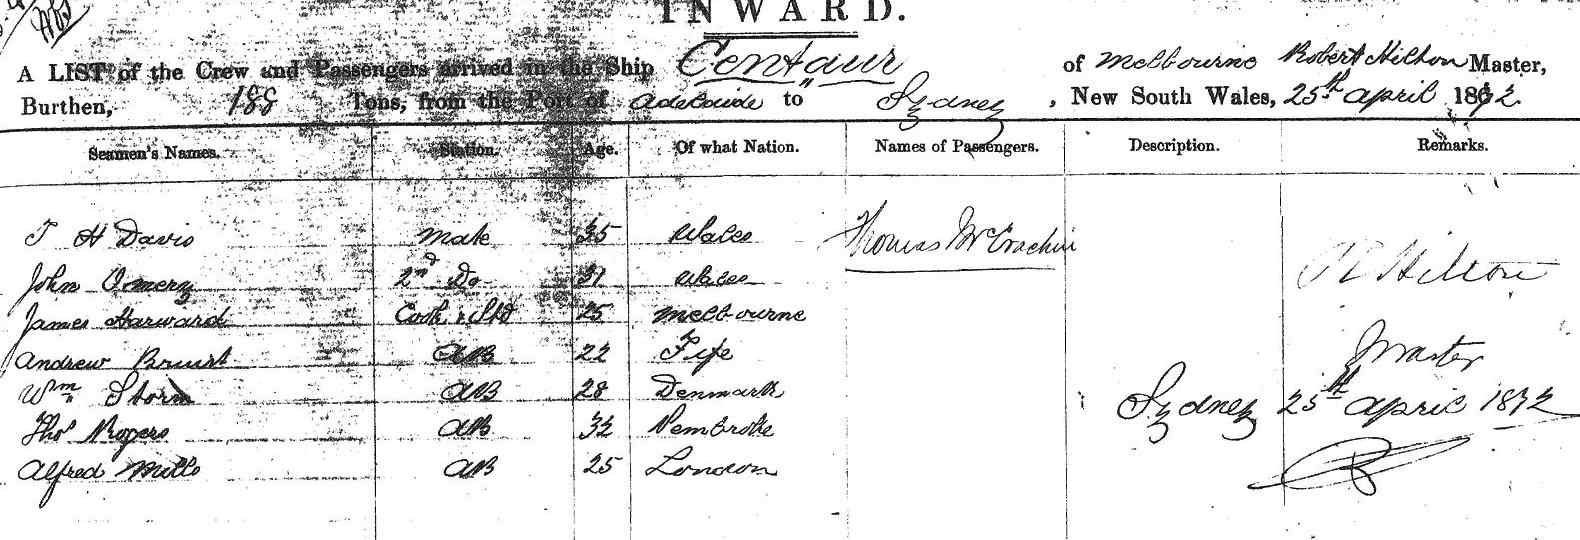 INWARD.
A LIST of the Crew and Passengers arrived in the Ship Centaur of Melbourne Robert Hilton Master,
Burthen, 188 Tons, from the Port of Adelaide to Sydney, New South Wales, 25th april 1872
Seamen's Names. Station. Age. Of what Nation. Names of Passengers. Description. Remarks.
T H Davis Mate 35 Wales Thomas McCrachin
John 2nd Do 31 Wales R Hilton
James Harward Cook & Std 25 Melbourne
Andrew AB 22 Fife Master
Wm Storm AB 28 Denmark Sydney 25th april 1872
Thos Rogers AB 32 Pembroke
Alfred Mills AB 25 London